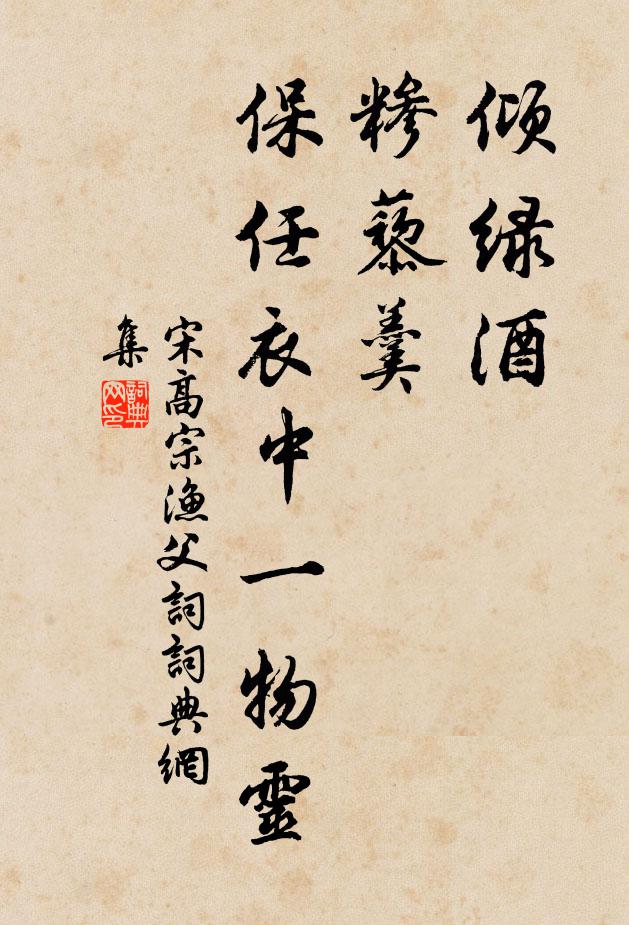 倾绿酒
糁藜羹
保任衣中一物靈
宋高宗漁父詞詞典網
集
詞典
网印